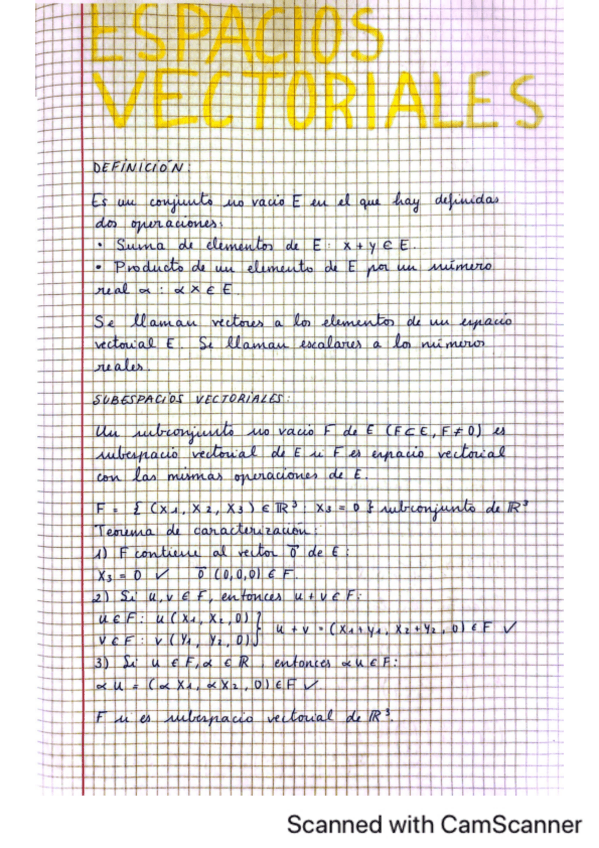 ESPACIOS
VECTORIALES
DEFINICIÓN:
Es un conjunto no vacío E en el que hay definidas
dos operaciones:
• Suma de elementos de E: x + y ∈ E.
• Producto de un elemento de E por un número
real α : α x ∈ E.
Se llaman vectores a los elementos de un espacio
vectorial E. Se llaman escalares a los números
reales.
SUBESPACIOS VECTORIALES:
Un subconjunto no vacío F de E (F⊂E, F≠0) es
subespacio vectorial de E si F es espacio vectorial
con las mismas operaciones de E.
F = { (x₁, x₂, x₃) ∈ ℝ³ : x₃ = 0 } subconjunto de ℝ³
Teorema de caracterización:
1) F contiene al vector 0⃗ de E:
x₃ = 0 ✓ 0⃗ (0,0,0) ∈ F.
2) Si u, v ∈ F, entonces u + v ∈ F:
u ∈ F: u (x₁, x₂, 0) }
v ∈ F: v (y₁, y₂, 0) } u + v = (x₁+y₁, x₂+y₂, 0) ∈ F ✓
3) Si u ∈ F, α ∈ ℝ, entonces αu ∈ F:
αu = (αx₁, αx₂, 0) ∈ F ✓
F si es subespacio vectorial de ℝ³.
Scanned with CamScanner